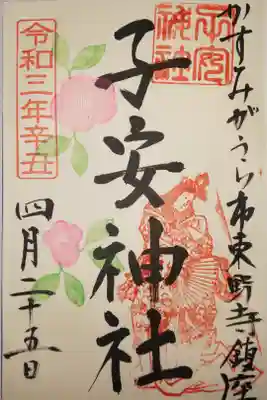 かすみがうら市東野寺鎮座
子安神社
子安神社
令和三年辛丑
四月二十五日